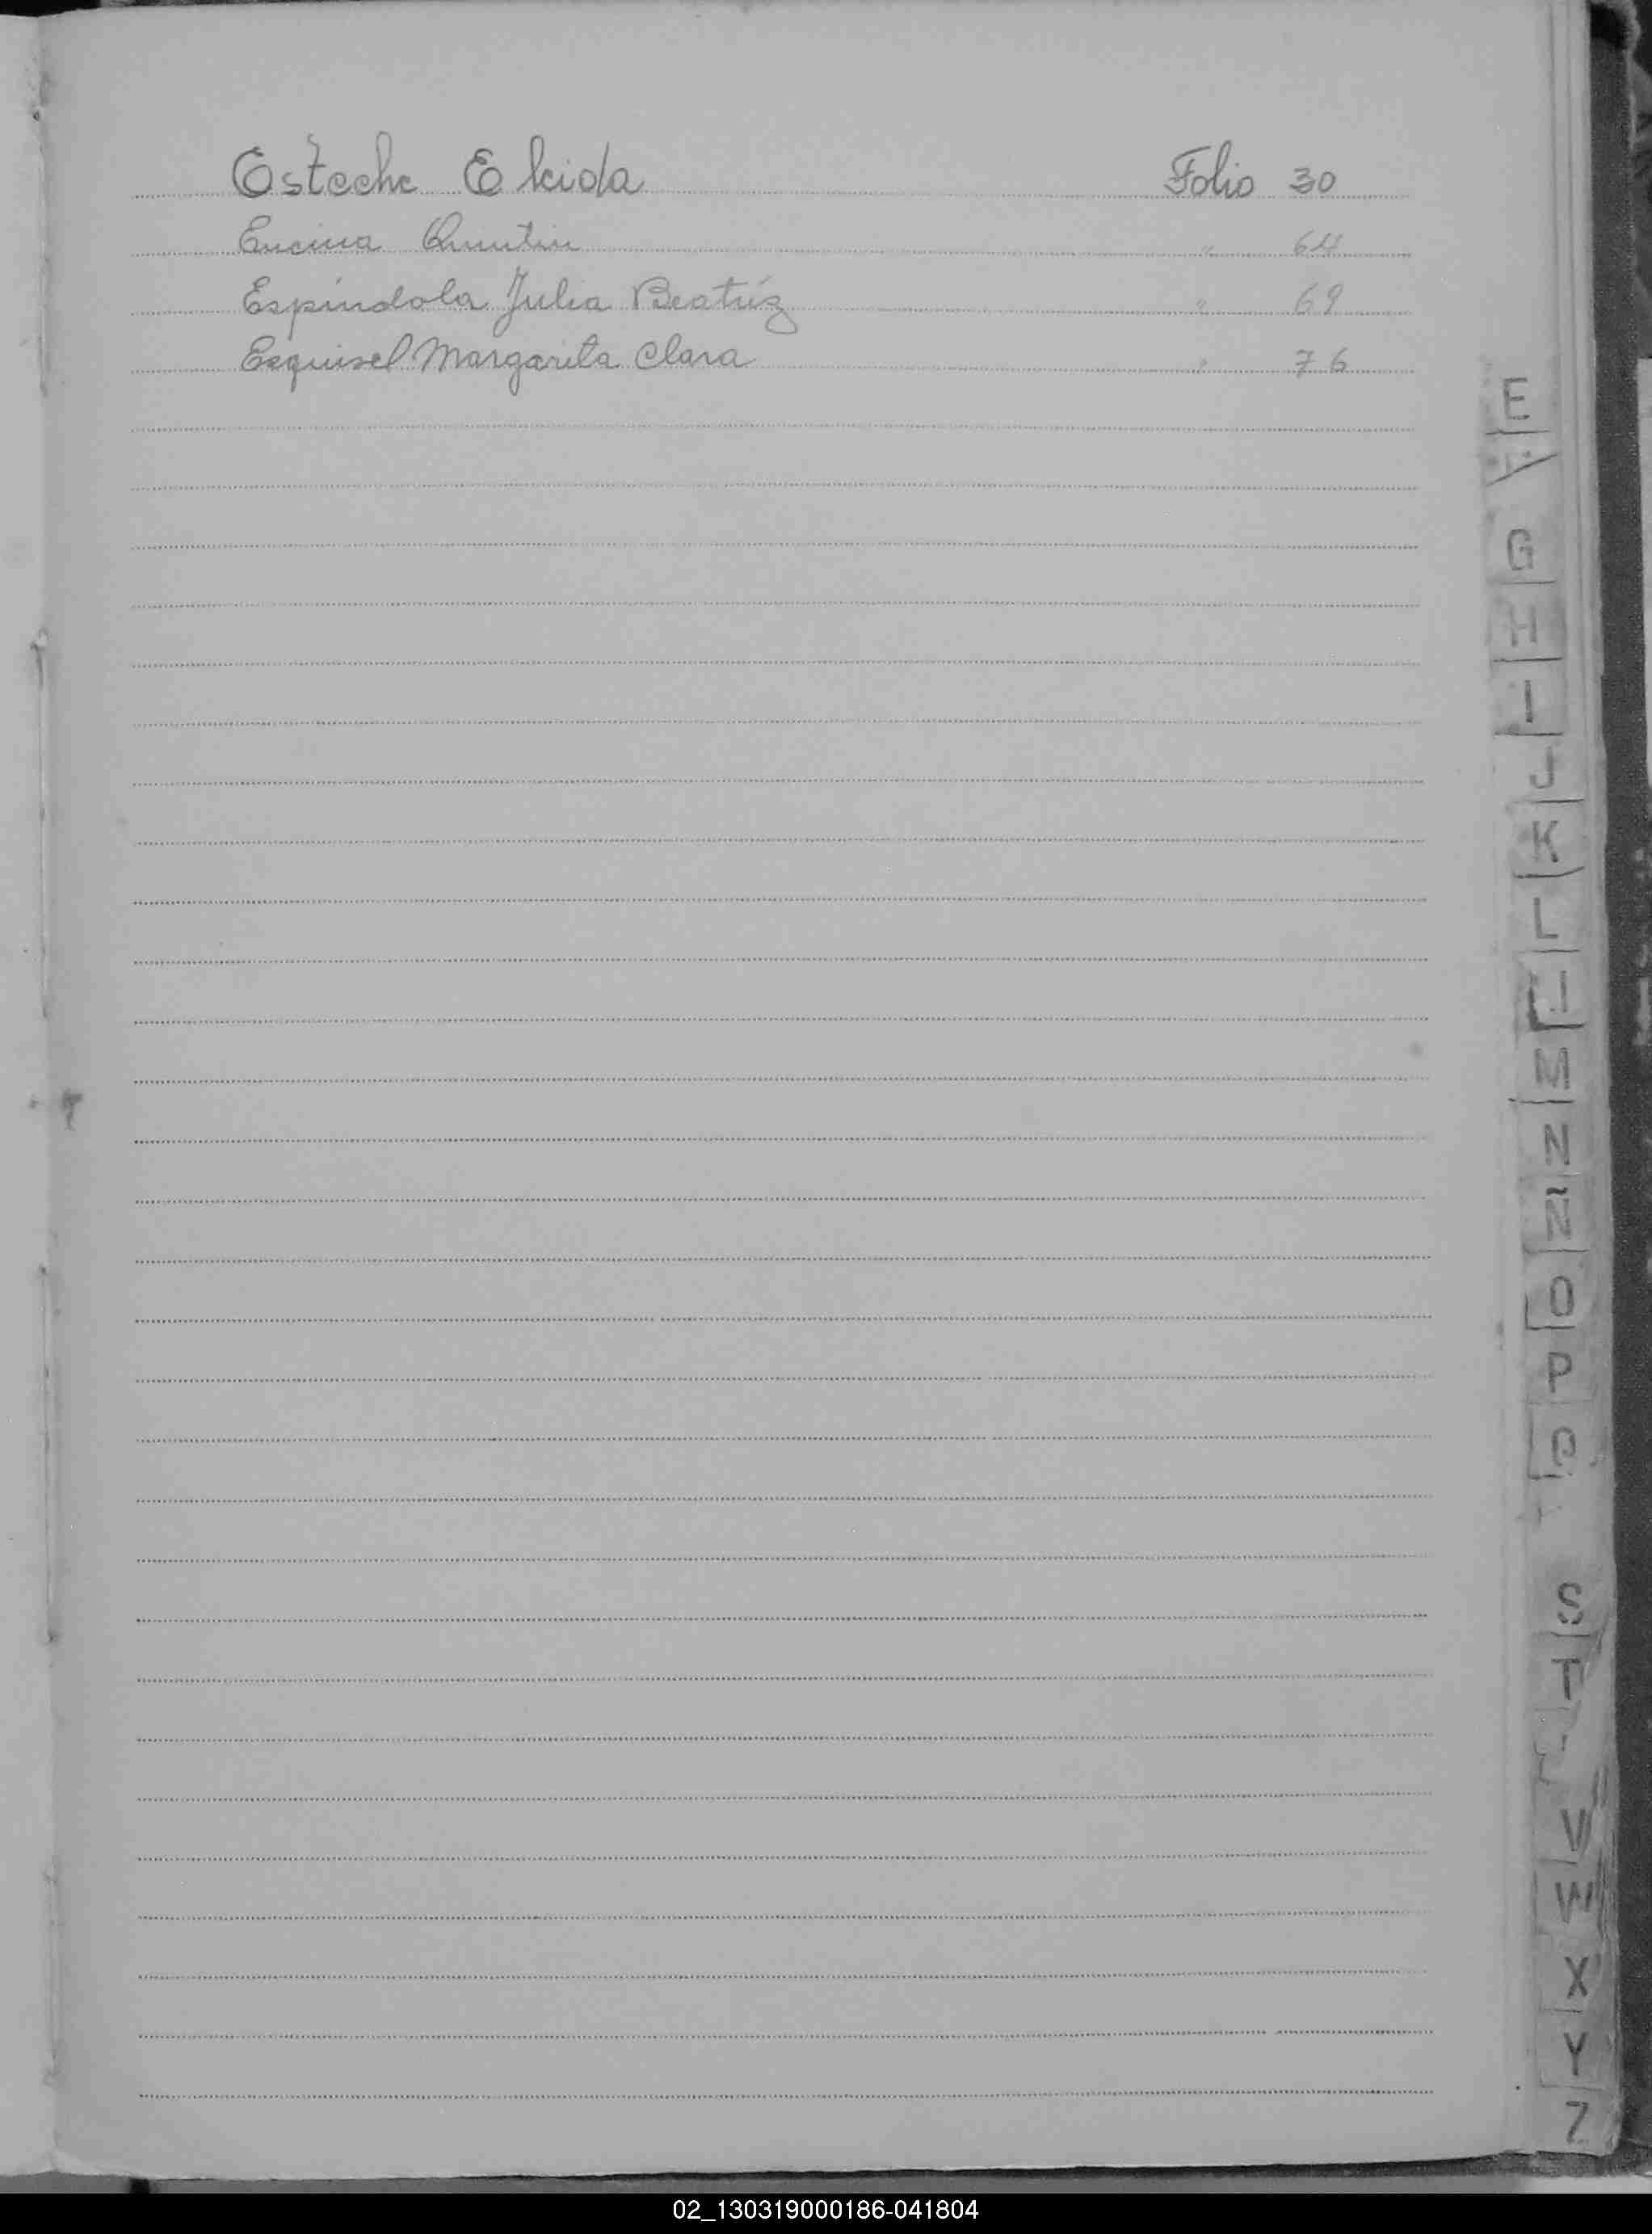 Esteche Elcida Folio 30
Encina Quintin " 64
Espíndola Julia Beatríz " 69
Esquivel Margarita Clara " 76
E
G
H
I
J
K
L
M
N
Ñ
O
P
Q
S
T
V
W
X
Y
Z
02_130319000186-041804